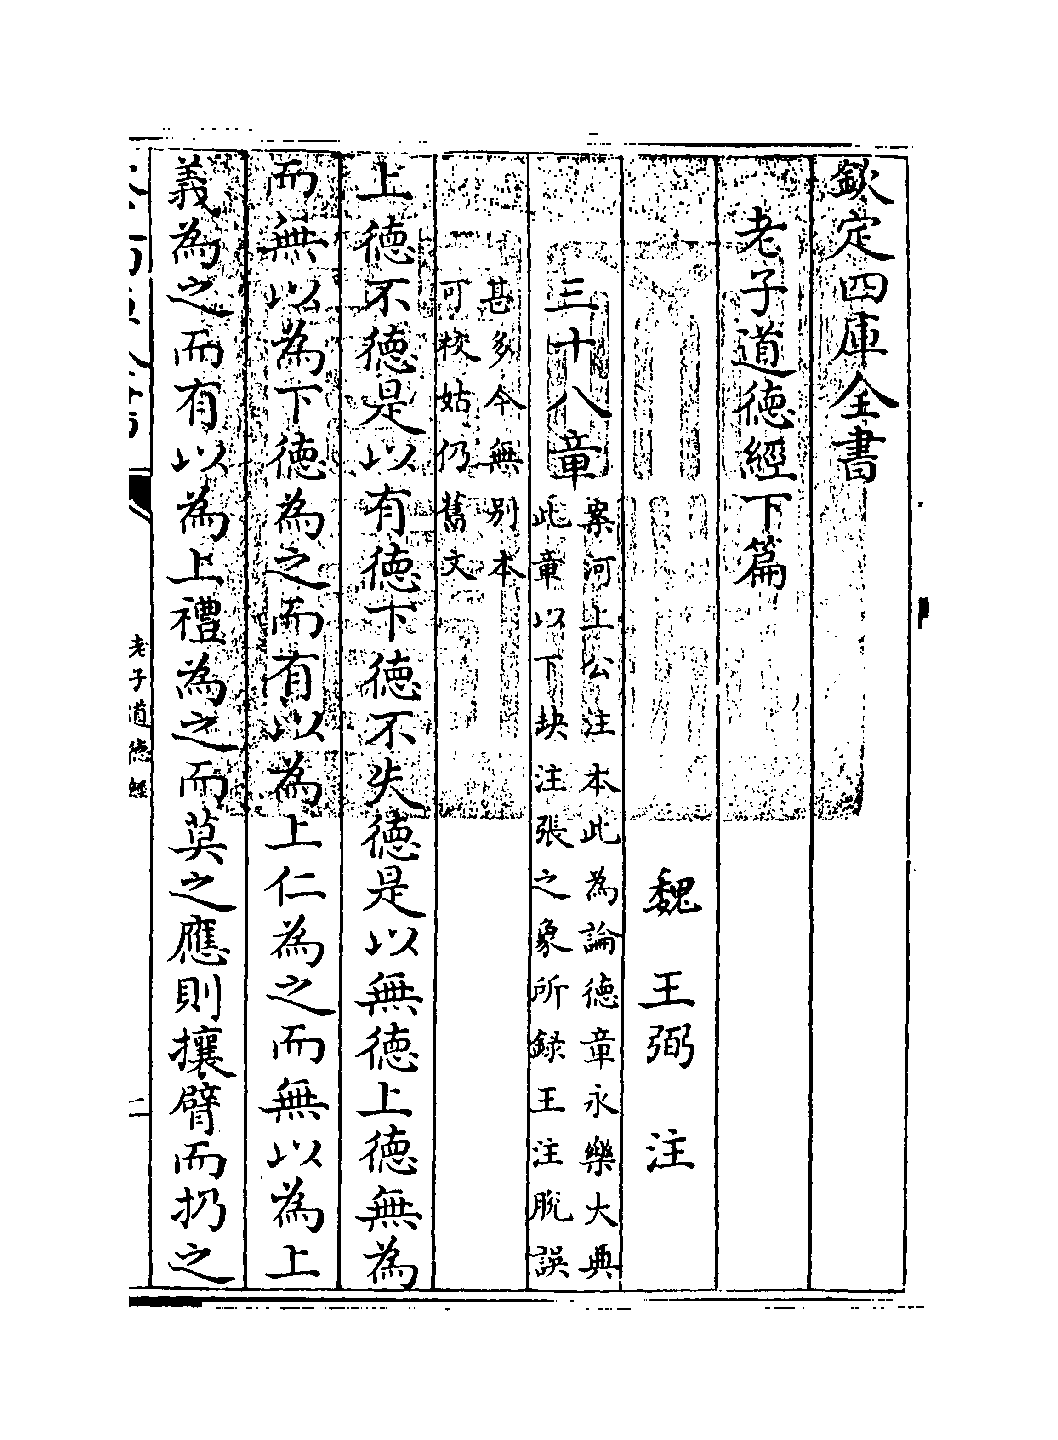 欽定四庫全書
老子道徳經下篇
魏　王弼　注
三十八章
案河上公注本此為論徳章永樂大典
此章以下缺注張之象所錄王注脫誤
甚多今無別本
可校姑仍舊文
上徳不徳是以有徳下徳不失徳是以無徳上徳無為
而無以為下徳為之而有以為上仁為之而無以為上
義為之而有以為上禮為之而莫之應則攘臂而扔之
老子道徳經
二